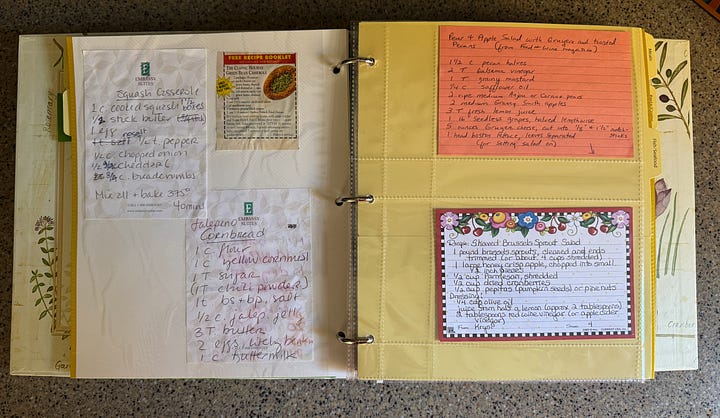 EMBASSY
SUITES
Squash Casserole
1 c cooled squash
1/2 stick butter
1 egg
1/4 t pepper
1/2 c chopped onion
cheddar
c. breadcrumbs
Mix all + bake 375°
40 mins
FREE RECIPE BOOKLET
THE CLASSIC HOLIDAY
GREEN BEAN CASSEROLE
EMBASSY
SUITES
Jalapeno
Cornbread
1 c flour
1 c yellow cornmeal
1 T sugar
(1 T chili powder)
1 t bs + bp, salt
1/2 c jalep. jelly
3 T butter
2 eggs,
1 c buttermilk
Pear & Apple Salad with Gruyere and toasted
Pecans (from Food & Wine magazine)
1 1/2 c pecan halves
2 T balsamic vinegar
1 T grainy mustard
1/4 c safflower oil
2 ripe medium Anjou or Comice pears
2 medium Granny Smith apples
3 T fresh lemon juice
1 lb seedless grapes, halved lengthwise
5 ounces Gruyere cheese, cut into
1 head boston lettuce, leaves separated
(for setting salad on)
Recipe: Shaved Brussels Sprout Salad
1 pound brussels sprouts, cleaned and ends
trimmed (or about 4 cups shredded)
1 large honey crisp apple, chopped into small
1/2 inch pieces
1/2 cup Parmesan, shredded
1/2 cup dried cranberries
1/2 cup pepitas (pumpkin seeds) or pine nuts
Dressing:
1/4 cup olive oil
juice from half a lemon (approx 2 tablespoons)
2 tablespoons red wine vinegar (or apple cider
vinegar)
From: Serves: 4
Rosemary